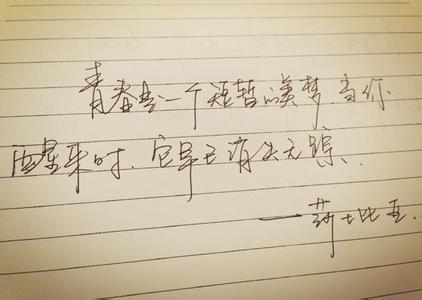 青春是一个短暂的美梦，当你
醒来时，它早已消失无踪．
——莎士比亚．